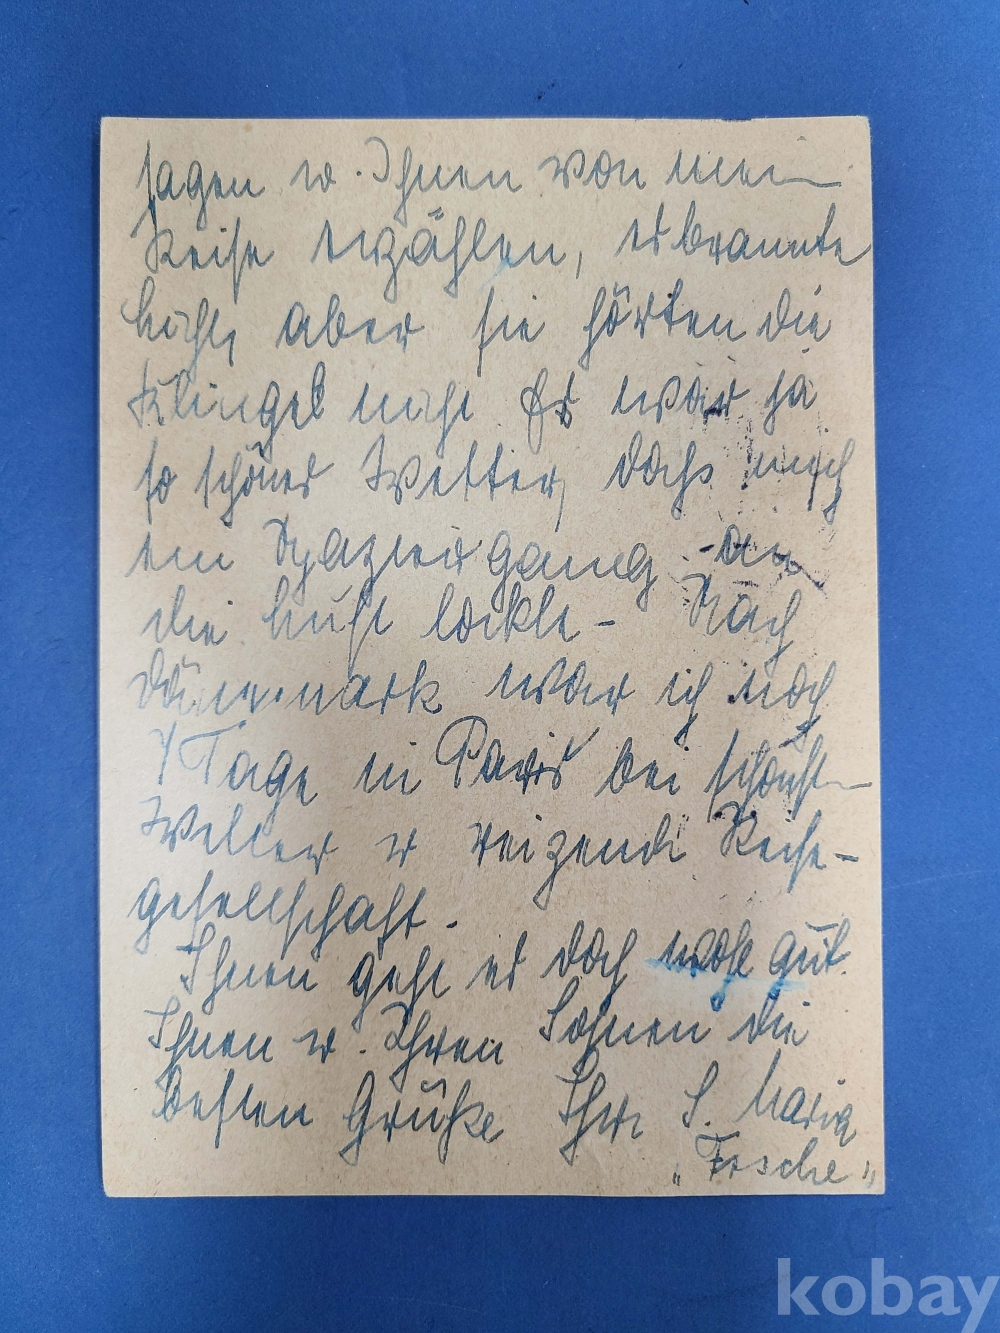 sagen u. Ihnen von mein
Reise erzählen, es brannte
Licht, aber sie hörten die
Klingel nicht Es war ja
so schönes Wetter, dass mich
ein Spaziergang an
die Luft lockte - Nach
Dänemark war ich noch
4 Tage in Paris bei schönst
Wetter u reizende Reise-
gesellschaft.
Ihnen geht es doch wohl gut.
Ihnen u. Ihren Söhnen die
besten Grüße Ihre S. Maria
"Fosche"
kobay